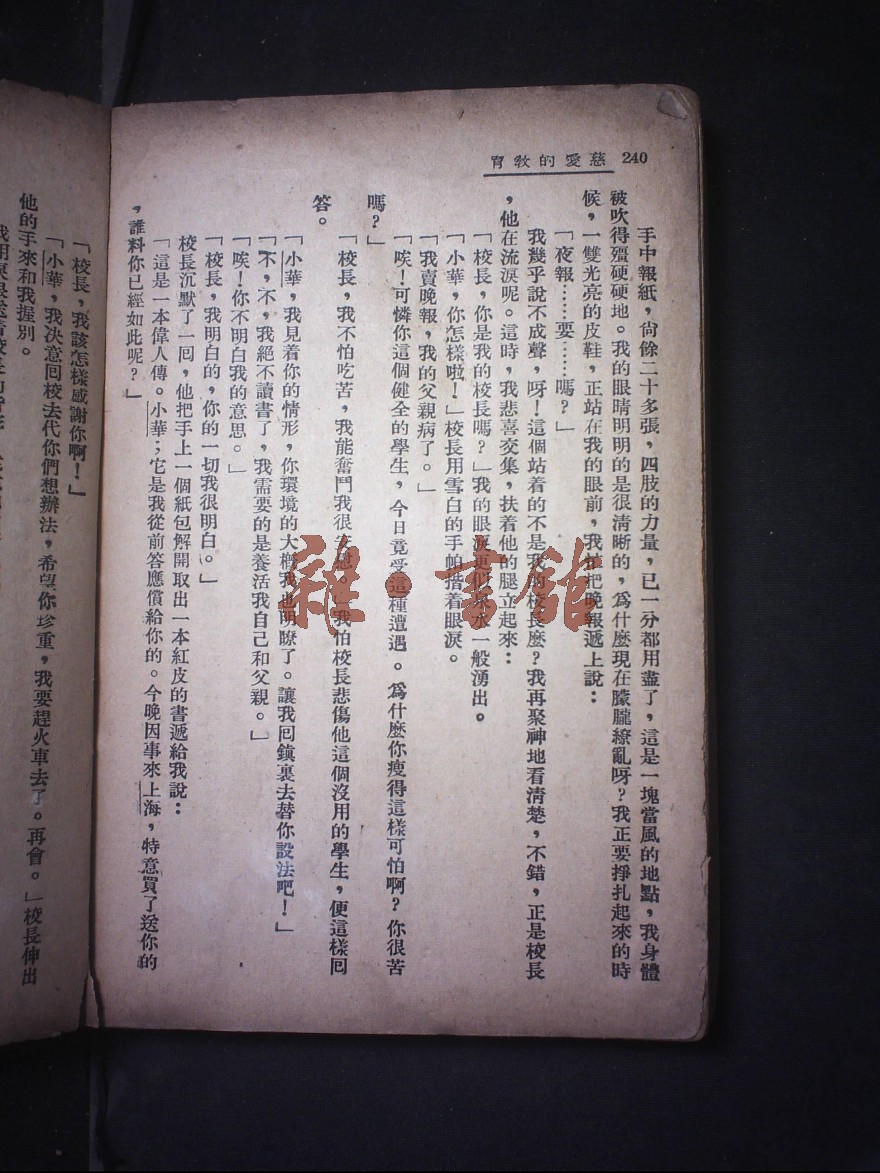 240 慈愛的敎育
手中報紙，尙餘二十多張，四肢的力量，已一分都用盡了，這是一塊當風的地點，我身體
被吹得殭硬硬地。我的眼睛明明的是很清晰的，爲什麼現在朦朧繚亂呀？我正要掙扎起來的時
候，一雙光亮的皮鞋，正站在我的眼前，我忙把晚報遞上說：
「夜報……要……嗎？」
我幾乎說不成聲，呀！這個站着的不是我的校長麼？我再聚神地看淸楚，不錯，正是校長
，他在流淚呢。這時，我悲喜交集，扶着他的腿立起來：
「校長，你是我的校長嗎？」我的眼淚更似泉水一般湧出。
「小華，你怎樣啦！」校長用雪白的手帕揩着眼淚。
「我賣晚報，我的父親病了。」
「唉！可憐你這個健全的學生，今日竟受這種遭遇。爲什麼你瘦得這樣可怕啊？你很苦
嗎？」
「校長，我不怕吃苦，我能奮鬥我很安慰。」我怕校長悲傷他這個沒用的學生，便這樣囘
答。
「小華，我見着你的情形，你環境的大槪我也明瞭了。讓我囘鎭裏去替你設法吧！」
「不，不，我絕不讀書了，我需要的是養活我自己和父親。」
「唉！你不明白我的意思。」
「校長，我明白的，你的一切我很明白。」
校長沉默了一囘，他把手上一個紙包解開取出一本紅皮的書遞給我說：
「這是一本偉人傳。小華；它是我從前答應償給你的。今晚因事來上海，特意買了送你的
，誰料你已經如此呢？」
「校長，我該怎樣感謝你啊！」
「小華，我决意囘校去代你們想辦法，希望你珍重，我要趕火車去了。再會。」校長伸出
他的手來和我握別。
雜·書館